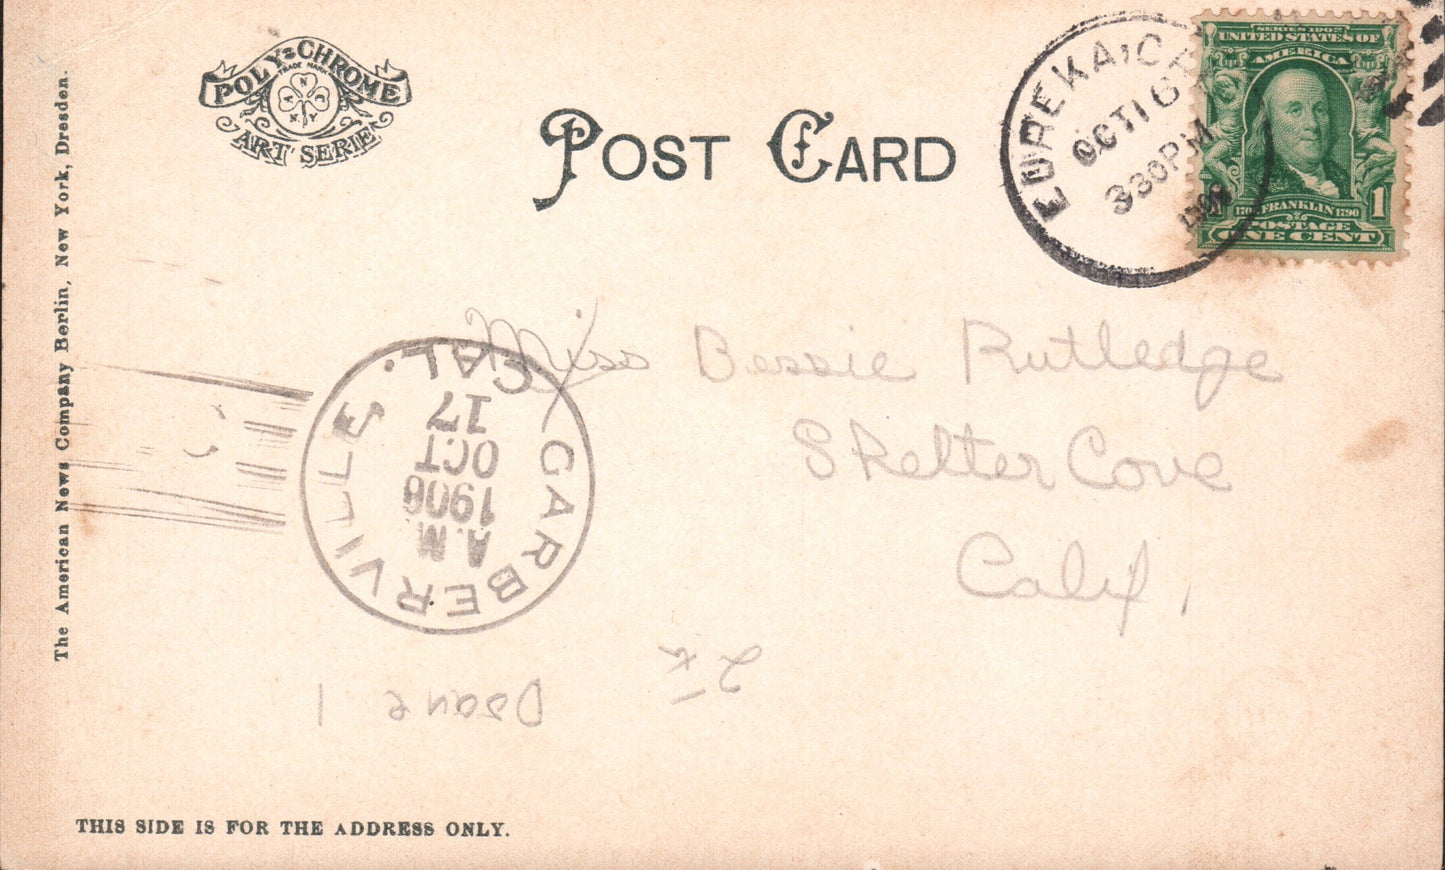 POLY-CHROME
TRADE MARK
A N C N Y
ART SERIE
POST CARD
EUREKA, CA
OCT 16
330PM
SERIES 1902
UNITED STATES OF
AMERICA
FRANKLIN 1790
1
POSTAGE
ONE CENT
The American News Company Berlin, New York, Dresden.
Miss Bessie Rutledge
Shelter Cove
Calif,
GARBERVILLE CAL.
A.M.
OCT
17
THIS SIDE IS FOR THE ADDRESS ONLY.